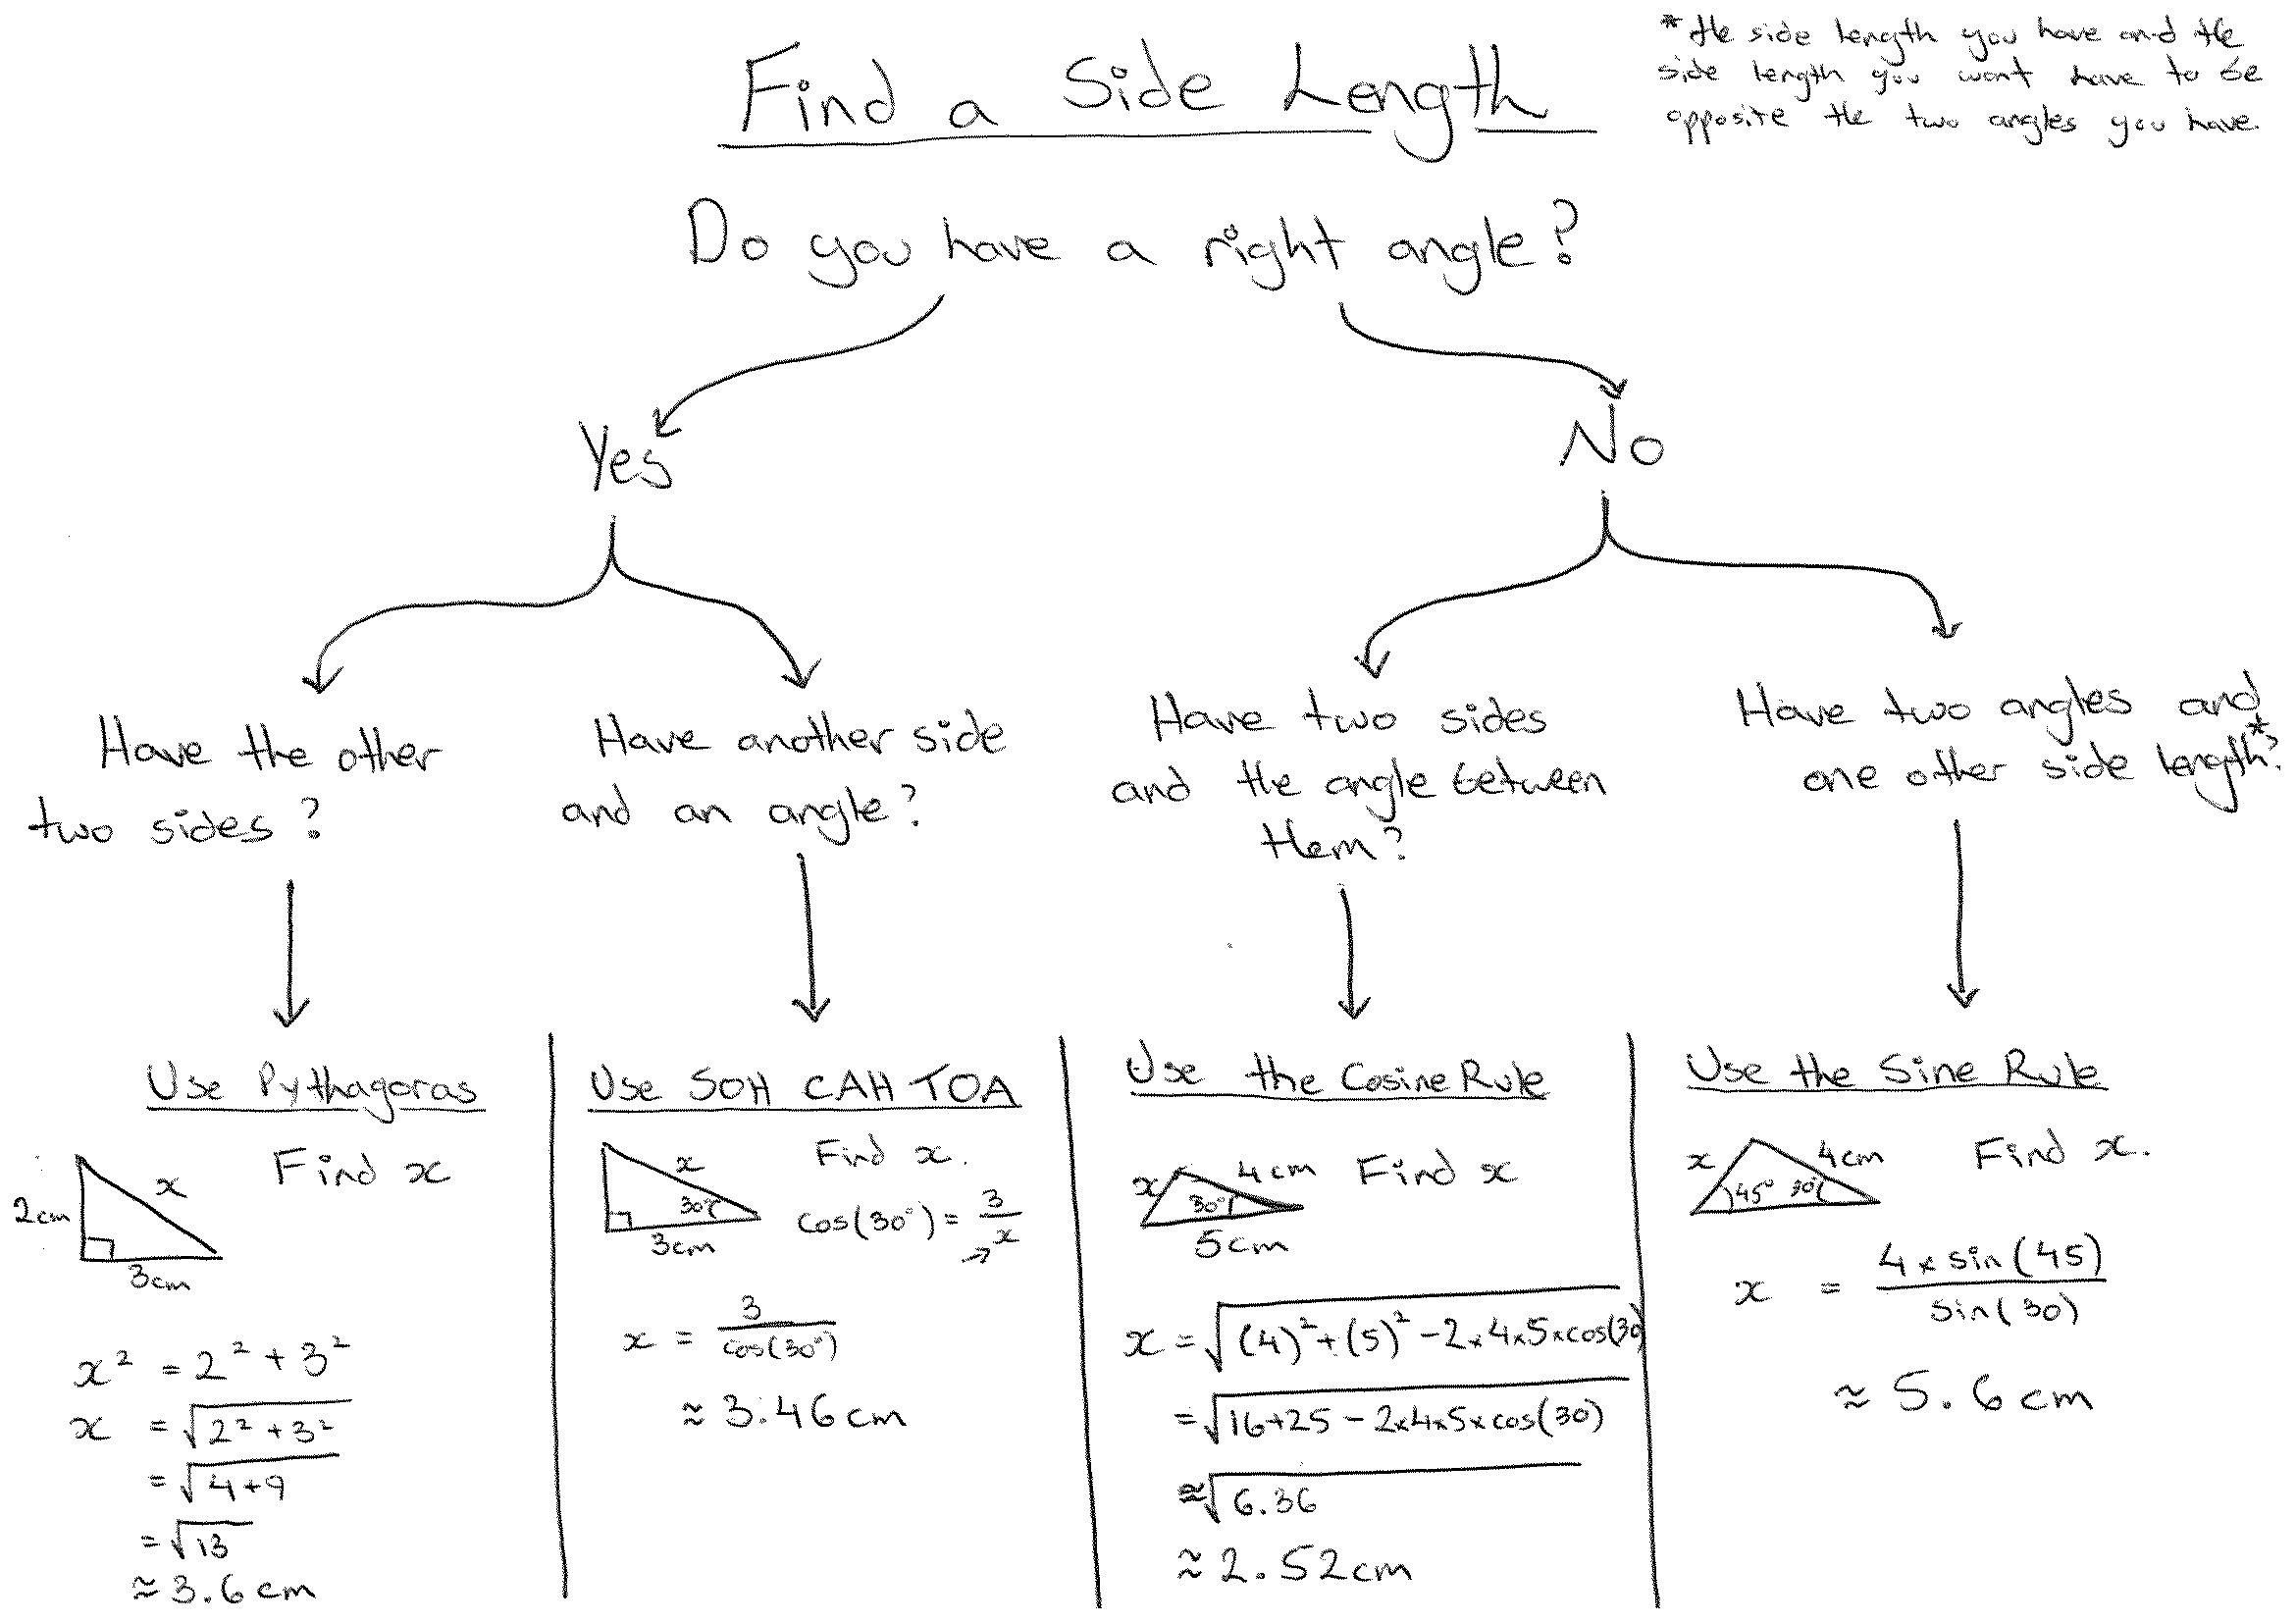 Find a Side Length
* the side length you have and the
side length you want have to be
opposite the two angles you have.
Do you have a right angle?
Yes
No
Have the other
two sides?
Have another side
and an angle?
Have two sides
and the angle between
them?
Have two angles and
one other side length*?
Use Pythagoras
Find x
2cm
x
3cm
x² = 2² + 3²
x = √(2² + 3²)
= √(4+9)
= √13
≈ 3.6 cm
Use SOH CAH TOA
Find x.
x
30°
3cm
cos(30°) = 3/x
→
x = 3/cos(30°)
≈ 3.46 cm
Use the Cosine Rule
x
4cm
Find x
30°
5cm
x = √((4)² + (5)² - 2×4×5×cos(30))
= √(16+25 - 2×4×5×cos(30))
≈ √6.36
≈ 2.52cm
Use the Sine Rule
x
4cm
Find x.
45°
30°
x = 4 × sin(45)/sin(30)
≈ 5.6 cm